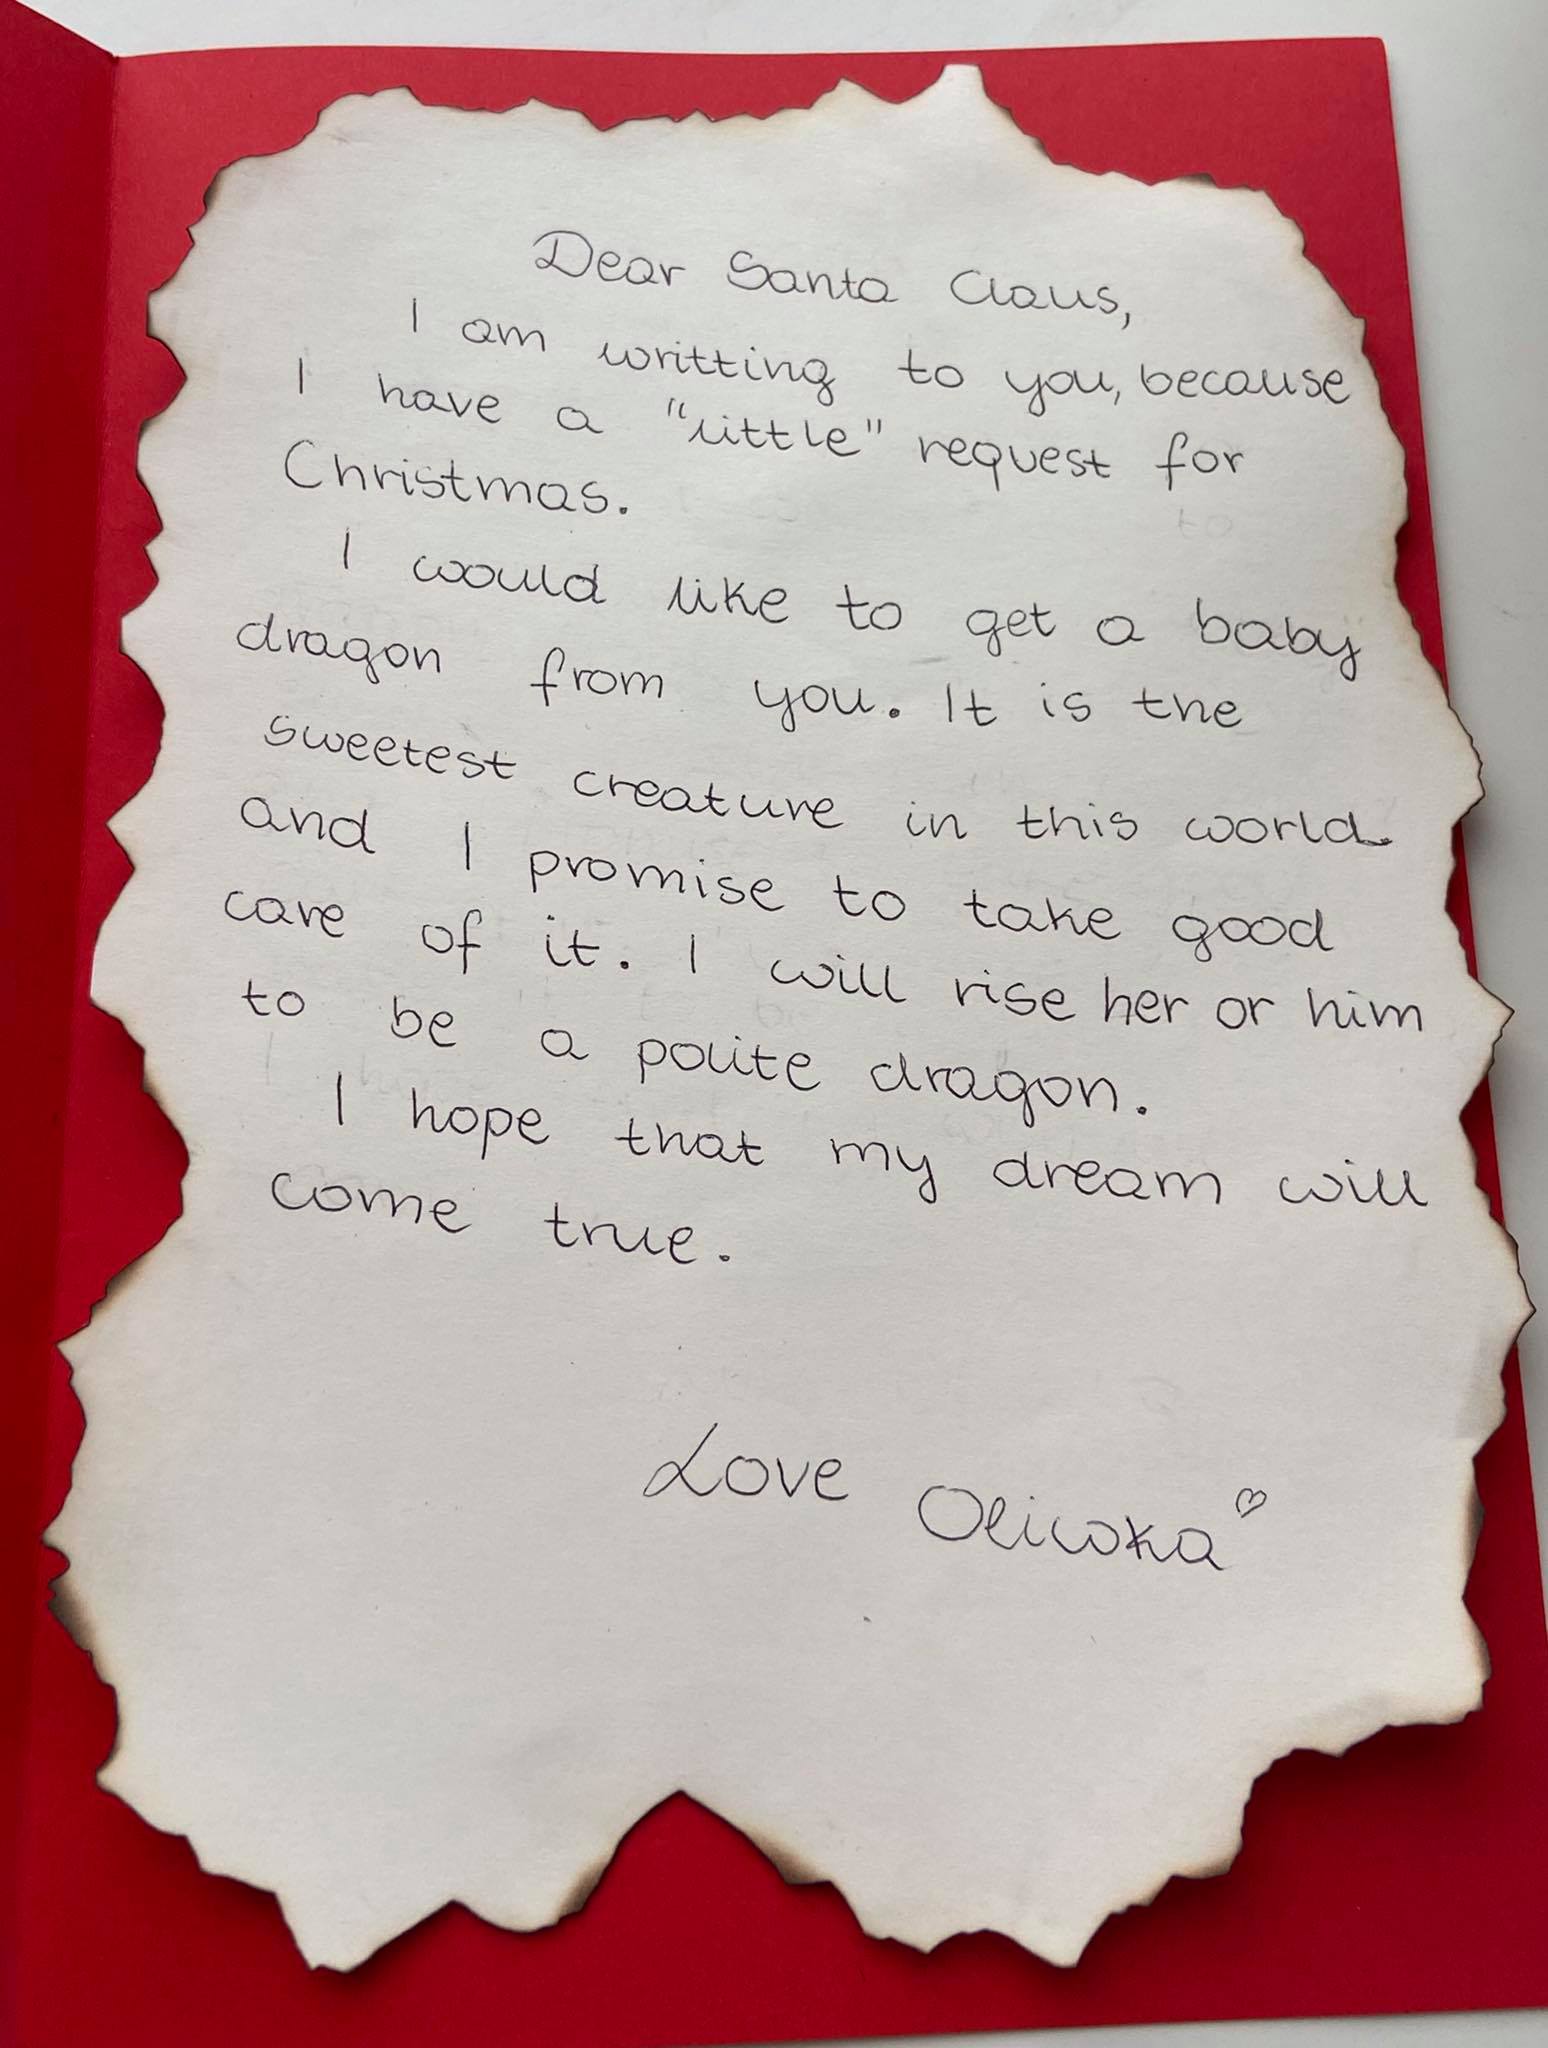 Dear Santa Claus,
I am writting to you, because
I have a "little" request for
Christmas.
I would like to get a baby
dragon from you. It is the
sweetest creature in this world
and I promise to take good
care of it. I will rise her or him
to be a polite dragon.
I hope that my dream will
come true.
Love Oliwka